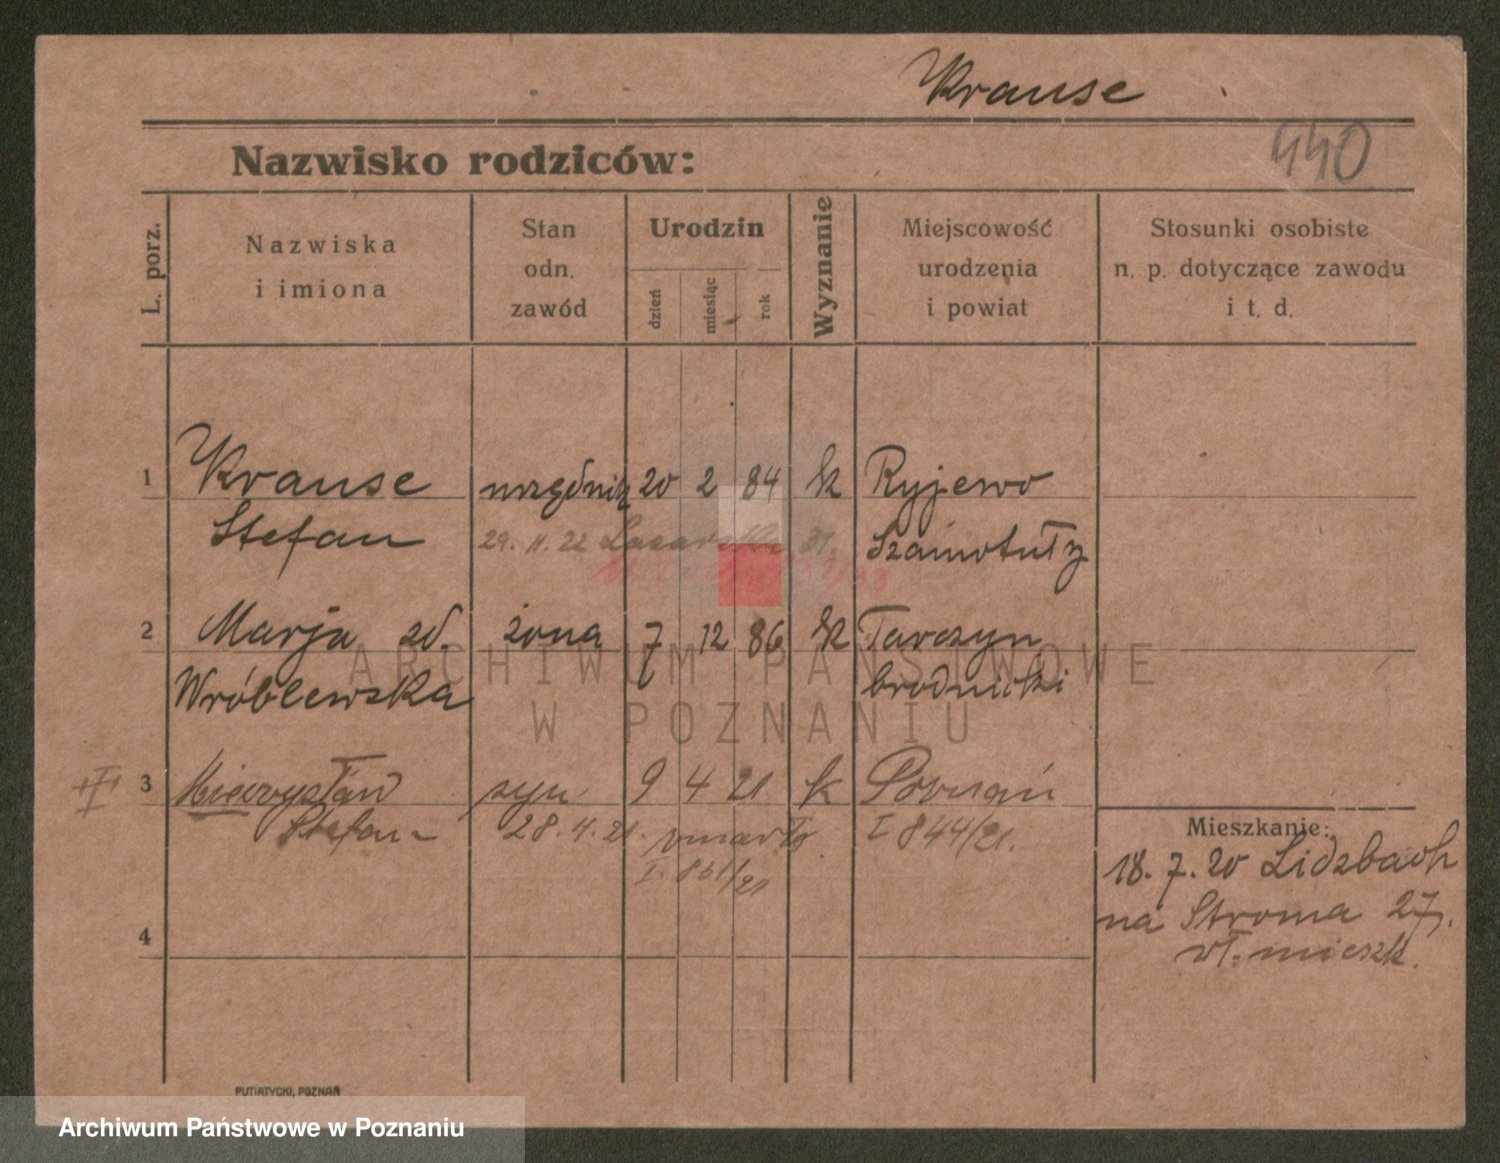 Krause
440
Nazwisko rodziców:
L. porz.
Nazwiska
i imiona
Stan
odn.
zawód
Urodzin
dzień
miesiąc
rok
Wyznanie
Miejscowość
urodzenia
i powiat
Stosunki osobiste
n. p. dotyczące zawodu
i t. d.
1 Krause urzędnik 20 2 84 k Ryjewo
Stefan 29. 11. 22 Szamotuły
2 Marja zd. żona 7 12 86 k Tarczyn
Wróblewska brodnicki
3 Mieczysław syn 9 4 21 k Poznań
Stefan 28. 4. 21. zmarły I 844/21.
I. 861/21
Mieszkanie:
18. 7. 20 Lidzbach
na Stroma 27.
wł. mieszk.
4
PUTIATYCKI, POZNAŃ
ARCHIWUM PAŃSTWOWE
W POZNANIU
Archiwum Państwowe w Poznaniu